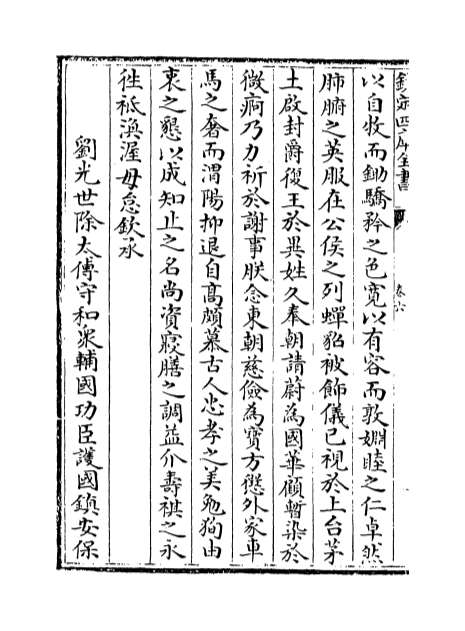 欽定四庫全書
卷六
以自牧而鋤驕矜之色寛以有容而敦婣睦之仁卓然
肺腑之英服在公侯之列蟬貂被飾儀已視於上台茅
土啟封爵復王於異姓久奉朝請蔚為國華顧暫染於
微痾乃力祈於謝事朕念東朝慈儉為寶方懲外家車
馬之奢而渭陽抑退自髙頗慕古人忠孝之美勉狥由
衷之懇以成知止之名尚資寢膳之調益介壽祺之永
徃祗渙渥毋怠欽承
劉光世除太傅守和衆輔國功臣護國鎮安保